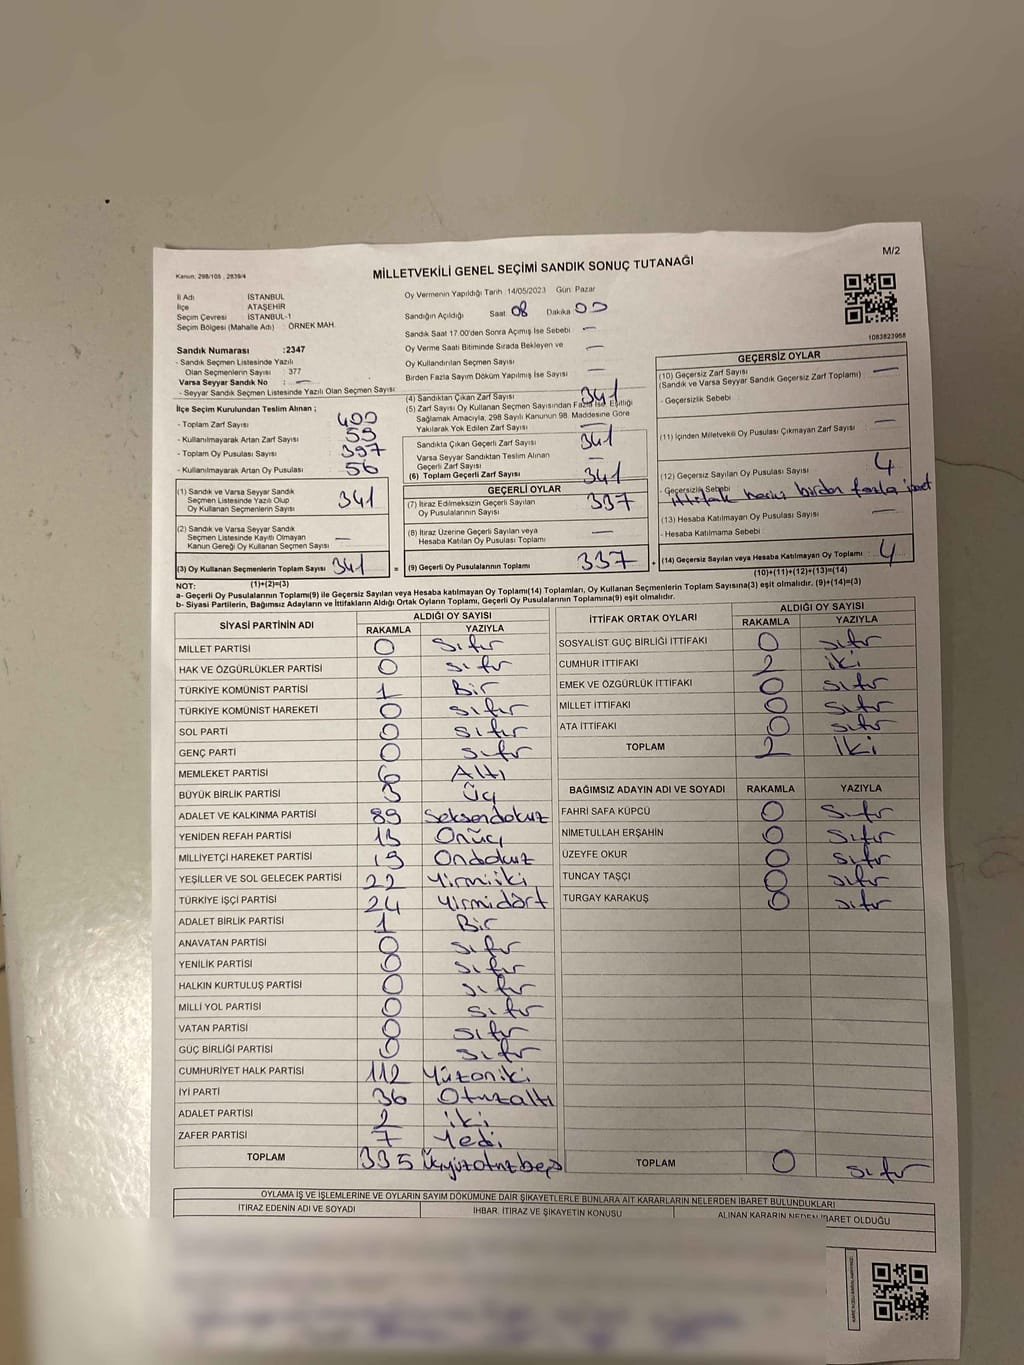 M/2
Kanun: 298/105 , 2839/4
MİLLETVEKİLİ GENEL SEÇİMİ SANDIK SONUÇ TUTANAĞI
İl Adı İSTANBUL
İlçe ATAŞEHİR
Seçim Çevresi İSTANBUL-1
Seçim Bölgesi (Mahalle Adı) : ÖRNEK MAH.
Sandık Numarası :2347
- Sandık Seçmen Listesinde Yazılı
Olan Seçmenlerin Sayısı : 377
Varsa Seyyar Sandık No : —
- Seyyar Sandık Seçmen Listesinde Yazılı Olan Seçmen Sayısı:
Oy Vermenin Yapıldığı Tarih :14/05/2023 Gün: Pazar
Sandığın Açıldığı Saat 08 Dakika 00
Sandık Saat 17.00'den Sonra Açılmış İse Sebebi —
Oy Verme Saati Bitiminde Sırada Bekleyen ve —
Oy Kullandırılan Seçmen Sayısı
Birden Fazla Sayım Döküm Yapılmış İse Sayısı —
1083823968
İlçe Seçim Kurulundan Teslim Alınan ;
- Toplam Zarf Sayısı 400
- Kullanılmayarak Artan Zarf Sayısı 59
- Toplam Oy Pusulası Sayısı 397
- Kullanılmayarak Artan Oy Pusulası 56
(1) Sandık ve Varsa Seyyar Sandık
Seçmen Listesinde Yazılı Olup
Oy Kullanan Seçmenlerin Sayısı 341
(2) Sandık ve Varsa Seyyar Sandık
Seçmen Listesinde Kayıtlı Olmayan
Kanun Gereği Oy Kullanan Seçmen Sayısı —
(3) Oy Kullanan Seçmenlerin Toplam Sayısı 341 =
(1)+(2)=(3)
(4) Sandıktan Çıkan Zarf Sayısı 341
(5) Zarf Sayısı Oy Kullanan Seçmen Sayısından Fazla ise, Eşitliği
Sağlamak Amacıyla, 298 Sayılı Kanunun 98. Maddesine Göre
Yakılarak Yok Edilen Zarf Sayısı —
Sandıkta Çıkan Geçerli Zarf Sayısı 341
Varsa Seyyar Sandıktan Teslim Alınan
Geçerli Zarf Sayısı —
(6) Toplam Geçerli Zarf Sayısı 341
GEÇERLİ OYLAR
(7) İtiraz Edilmeksizin Geçerli Sayılan
Oy Pusulalarının Sayısı 337
(8) İtiraz Üzerine Geçerli Sayılan veya
Hesaba Katılan Oy Pusulası Toplamı —
(9) Geçerli Oy Pusulalarının Toplamı 337 +
GEÇERSİZ OYLAR
(10) Geçersiz Zarf Sayısı —
(Sandık ve Varsa Seyyar Sandık Geçersiz Zarf Toplamı)
- Geçersizlik Sebebi
(11) İçinden Milletvekili Oy Pusulası Çıkmayan Zarf Sayısı —
(12) Geçersiz Sayılan Oy Pusulası Sayısı 4
- Geçersizlik Sebebi ittifak harici birden fazla
(13) Hesaba Katılmayan Oy Pusulası Sayısı —
- Hesaba Katılmama Sebebi
(14) Geçersiz Sayılan veya Hesaba Katılmayan Oy Toplamı 4
(10)+(11)+(12)+(13)=(14)
NOT:
a- Geçerli Oy Pusulalarının Toplamı(9) ile Geçersiz Sayılan veya Hesaba katılmayan Oy Toplamı(14) Toplamları, Oy Kullanan Seçmenlerin Toplam Sayısına(3) eşit olmalıdır. (9)+(14)=(3)
b- Siyasi Partilerin, Bağımsız Adayların ve İttifakların Aldığı Ortak Oyların Toplamı, Geçerli Oy Pusulalarının Toplamına(9) eşit olmalıdır.
SİYASİ PARTİNİN ADI ALDIĞI OY SAYISI
RAKAMLA YAZIYLA
MİLLET PARTİSİ 0 Sıfır
HAK VE ÖZGÜRLÜKLER PARTİSİ 0 sıfır
TÜRKİYE KOMÜNİST PARTİSİ 1 Bir
TÜRKİYE KOMÜNİST HAREKETİ 0 sıfır
SOL PARTİ 0 sıfır
GENÇ PARTİ 0 sıfır
MEMLEKET PARTİSİ 6 Altı
BÜYÜK BİRLİK PARTİSİ 3 Üç
ADALET VE KALKINMA PARTİSİ 89 Seksendokuz
YENİDEN REFAH PARTİSİ 13 Onüç
MİLLİYETÇİ HAREKET PARTİSİ 19 Ondokuz
YEŞİLLER VE SOL GELECEK PARTİSİ 22 Yirmiiki
TÜRKİYE İŞÇİ PARTİSİ 24 Yirmidört
ADALET BİRLİK PARTİSİ 1 Bir
ANAVATAN PARTİSİ 0 sıfır
YENİLİK PARTİSİ 0 sıfır
HALKIN KURTULUŞ PARTİSİ 0 sıfır
MİLLİ YOL PARTİSİ 0 sıfır
VATAN PARTİSİ 0 sıfır
GÜÇ BİRLİĞİ PARTİSİ 0 sıfır
CUMHURİYET HALK PARTİSİ 112 Yüzoniki
İYİ PARTİ 36 Otuzaltı
ADALET PARTİSİ 2 iki
ZAFER PARTİSİ 7 Yedi
TOPLAM 335 Üçyüzotuzbeş
İTTİFAK ORTAK OYLARI ALDIĞI OY SAYISI
RAKAMLA YAZIYLA
SOSYALİST GÜÇ BİRLİĞİ İTTİFAKI 0 sıfır
CUMHUR İTTİFAKI 2 iki
EMEK VE ÖZGÜRLÜK İTTİFAKI 0 sıfır
MİLLET İTTİFAKI 0 sıfır
ATA İTTİFAKI 0 sıfır
TOPLAM 2 İki
BAĞIMSIZ ADAYIN ADI VE SOYADI RAKAMLA YAZIYLA
FAHRİ SAFA KÜPCÜ 0 sıfır
NİMETULLAH ERŞAHİN 0 sıfır
ÜZEYFE OKUR 0 sıfır
TUNCAY TAŞÇI 0 sıfır
TURGAY KARAKUŞ 0 sıfır
TOPLAM 0 sıfır
OYLAMA İŞ VE İŞLEMLERİNE VE OYLARIN SAYIM DÖKÜMÜNE DAİR ŞİKAYETLERLE BUNLARA AİT KARARLARIN NELERDEN İBARET BULUNDUKLARI
İTİRAZ EDENİN ADI VE SOYADI İHBAR, İTİRAZ VE ŞİKAYETİN KONUSU ALINAN KARARIN NEDEN İBARET OLDUĞU